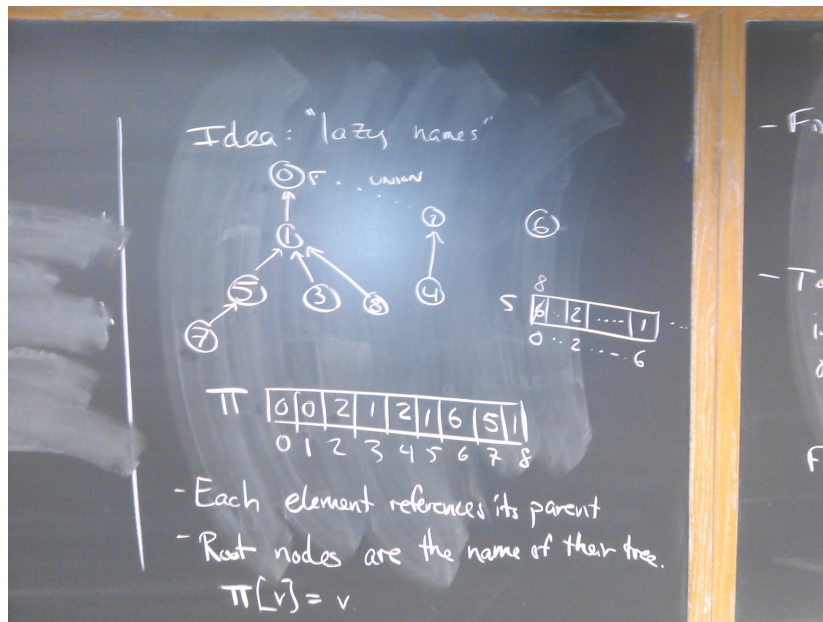 Idea: "lazy names"
0 UNION
1
2
6
5 3 8
4
7
8
S 6 .. 2 ..... 1 ...
0 .. 2 ..... 6
π 0 0 2 1 2 1 6 5 1
0 1 2 3 4 5 6 7 8
- Each element references its parent
- Root nodes are the name of their tree.
π[v] = v
- F
- T
F